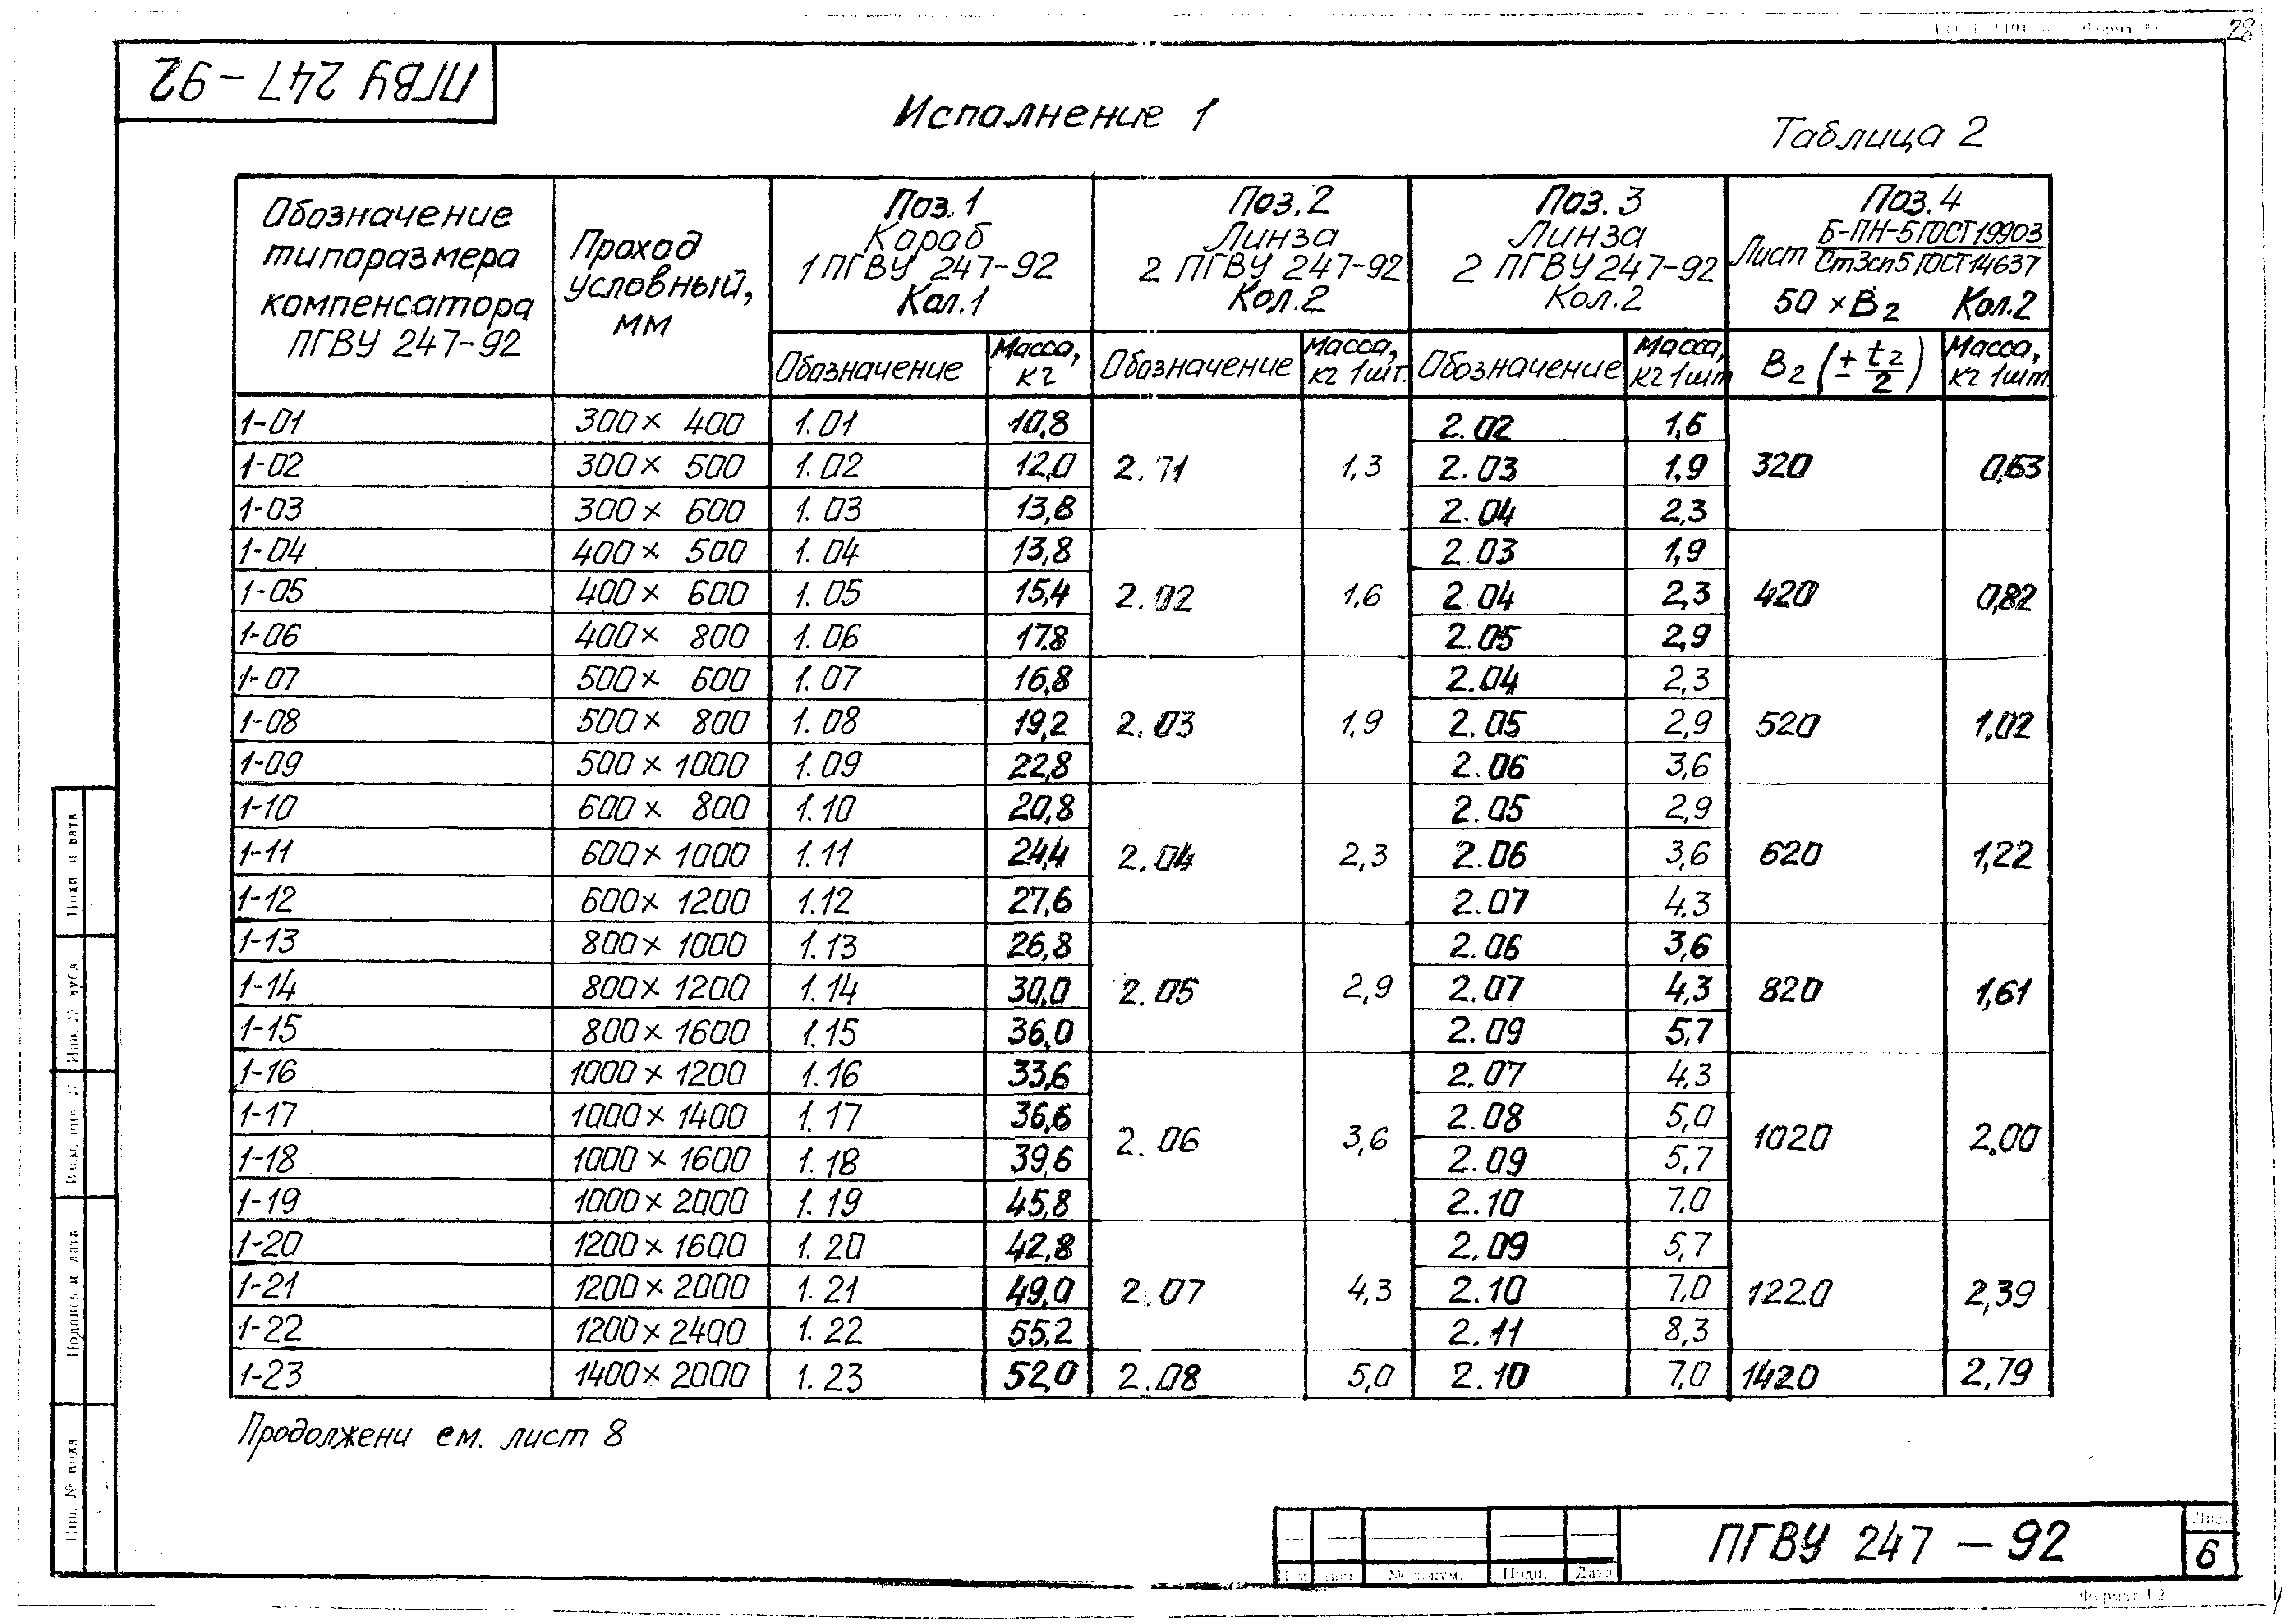 28
ПГВУ 247-92
Исполнение 1
Таблица 2
Обозначение типоразмера компенсатора ПГВУ 247-92
Проход условный, мм
Поз.1 Короб 1 ПГВУ 247-92 Кол.1
Поз.2 Линза 2 ПГВУ 247-92 Кол.2
Поз.3 Линза 2 ПГВУ 247-92 Кол.2
Поз.4 Лист Б-ПН-5 ГОСТ 19903 / Ст3сп5 ГОСТ 14637 50 × В2 Кол.2
Обозначение Масса, кг Обозначение Масса, кг 1шт. Обозначение Масса, кг 1шт В2 (± t2/2) Масса, кг 1шт.
1-01 300 × 400 1.01 10,8 2.02 1,6
1-02 300 × 500 1.02 12,0 2.71 1,3 2.03 1,9 320 0,63
1-03 300 × 600 1.03 13,8 2.04 2,3
1-04 400 × 500 1.04 13,8 2.03 1,9
1-05 400 × 600 1.05 15,4 2.02 1,6 2.04 2,3 420 0,82
1-06 400 × 800 1.06 17,8 2.05 2,9
1-07 500 × 600 1.07 16,8 2.04 2,3
1-08 500 × 800 1.08 19,2 2.03 1,9 2.05 2,9 520 1,02
1-09 500 × 1000 1.09 22,8 2.06 3,6
1-10 600 × 800 1.10 20,8 2.05 2,9
1-11 600 × 1000 1.11 24,4 2.04 2,3 2.06 3,6 620 1,22
1-12 600 × 1200 1.12 27,6 2.07 4,3
1-13 800 × 1000 1.13 26,8 2.06 3,6
1-14 800 × 1200 1.14 30,0 2.05 2,9 2.07 4,3 820 1,61
1-15 800 × 1600 1.15 36,0 2.09 5,7
1-16 1000 × 1200 1.16 33,6 2.07 4,3
1-17 1000 × 1400 1.17 36,6 2.06 3,6 2.08 5,0 1020 2,00
1-18 1000 × 1600 1.18 39,6 2.09 5,7
1-19 1000 × 2000 1.19 45,8 2.10 7,0
1-20 1200 × 1600 1.20 42,8 2.09 5,7
1-21 1200 × 2000 1.21 49,0 2.07 4,3 2.10 7,0 1220 2,39
1-22 1200 × 2400 1.22 55,2 2.11 8,3
1-23 1400 × 2000 1.23 52,0 2.08 5,0 2.10 7,0 1420 2,79
Продолжени см. лист 8
Подп и дата
Инв. № дубл
Взам. инв. №
Подпись и дата
Инв. № подл.
№ докум. Подп. Дата
ПГВУ 247 - 92
Лист
6
Формат 12